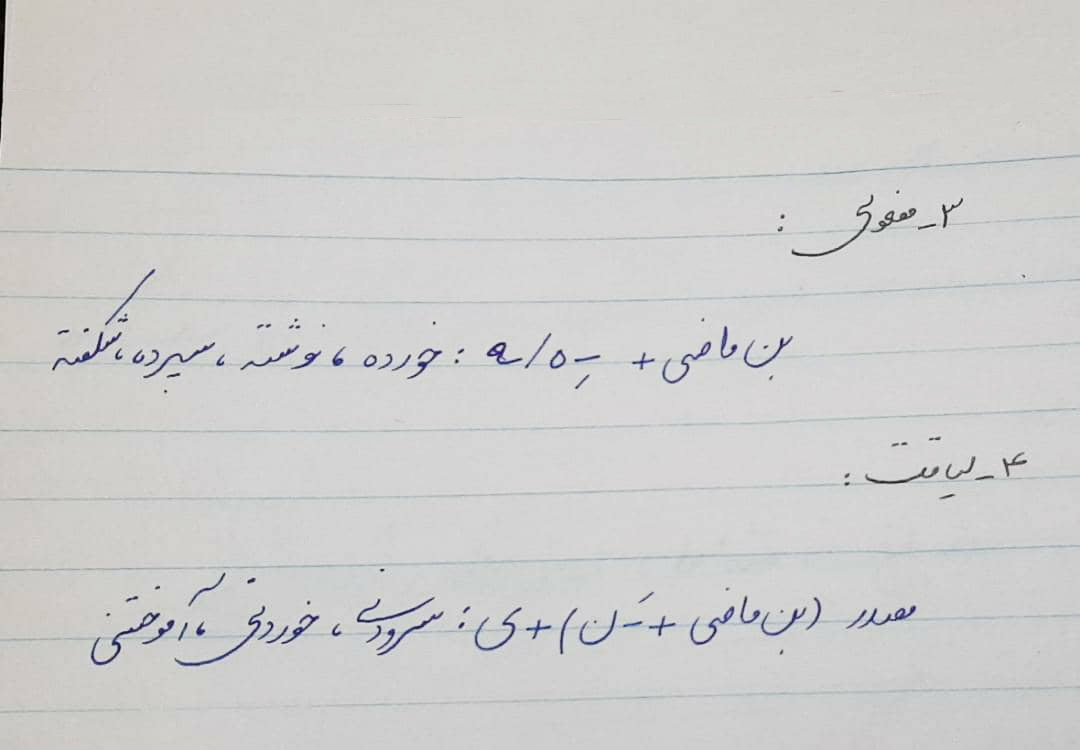 ۳_ مفعولی :
بن ماضی + ـِ ه/ ـه : خورده ، نوشته ، سپرده ، شگفته
۴_ لیاقت :
مصدر (بن ماضی + ـَ ن) + ی : سرودنی ، خوردنی ، آموختنی